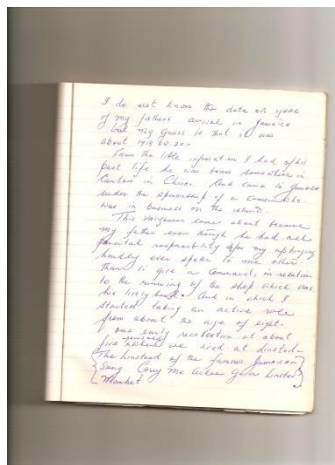 I do not know the date or year
of my fathers arrival in Jamaica
but my guess is that it was
about 1918 or 20.
From the little information I had of his
past life he was born somewhere in
Canton in China. And came to Jamaica
under the sponsorship of a
was in business on the island.
This vagueness comes about because
my father even though he had
parental responsibility for my upbringing
hardly ever spoke to me other
than to give a Commands in relation
to the running of the shop which was
his lively hood. And in which I
started taking an active role
from about the age of eight.
one early recollection at about
five we lived at Linstead
The Linstead of the famous Jamaican
Song Carry Me Ackee Go a Linstead
Market